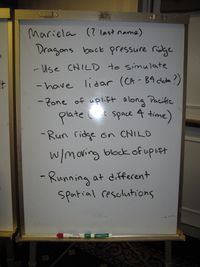 Mariela (? last name)
Dragons back pressure ridge
- Use CHILD to simulate
- have lidar (CA - B4 data?)
- Zone of uplift along Pacific
plate ( space & time)
- Run ridge on CHILD
w/moving block of uplift
- Running at different
spatial resolutions